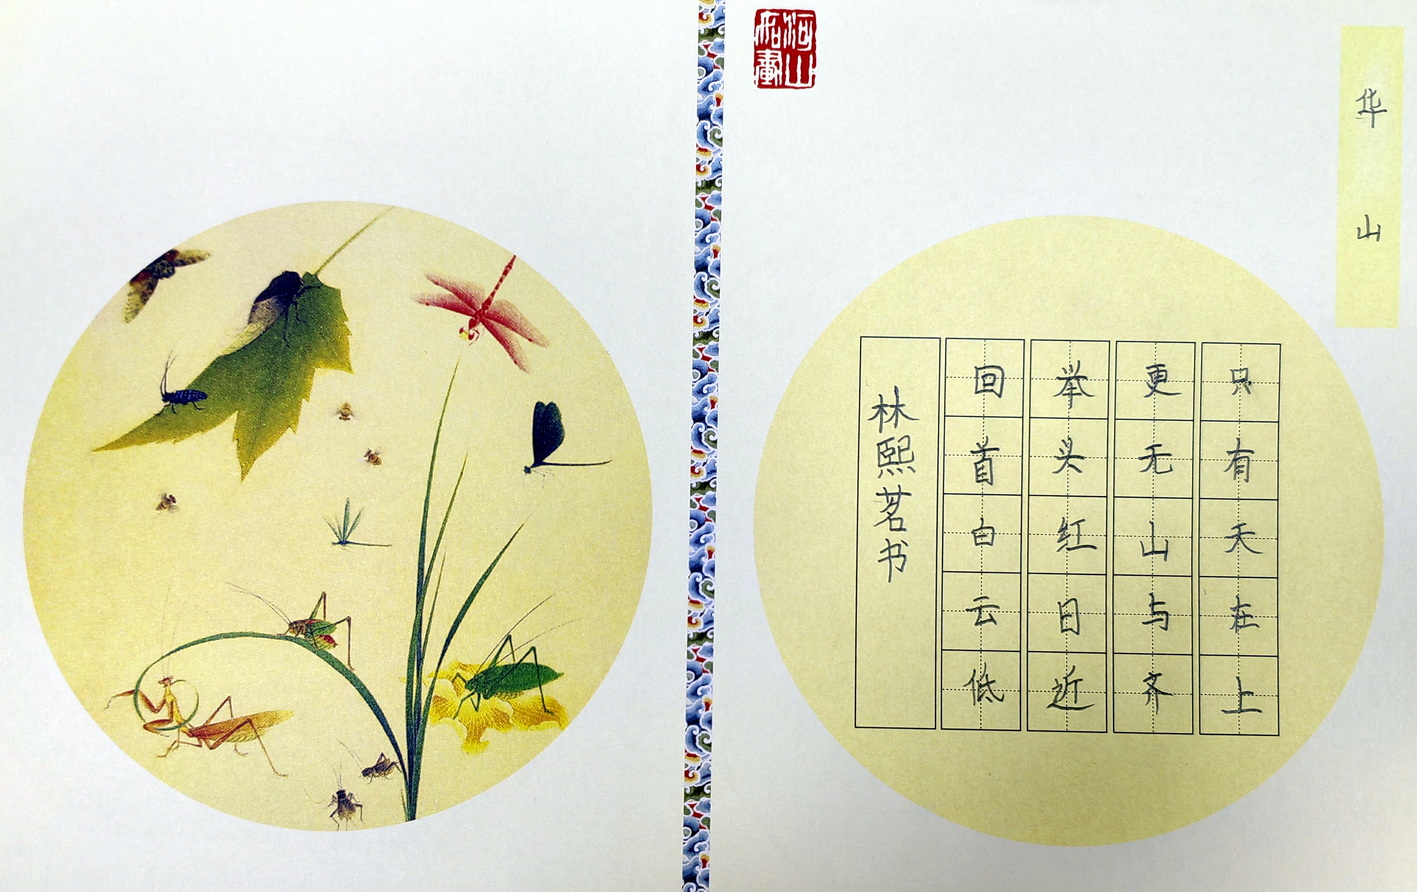 华山
只有天在上
更无山与齐
举头红日近
回首白云低
林熙茗书
河山如画